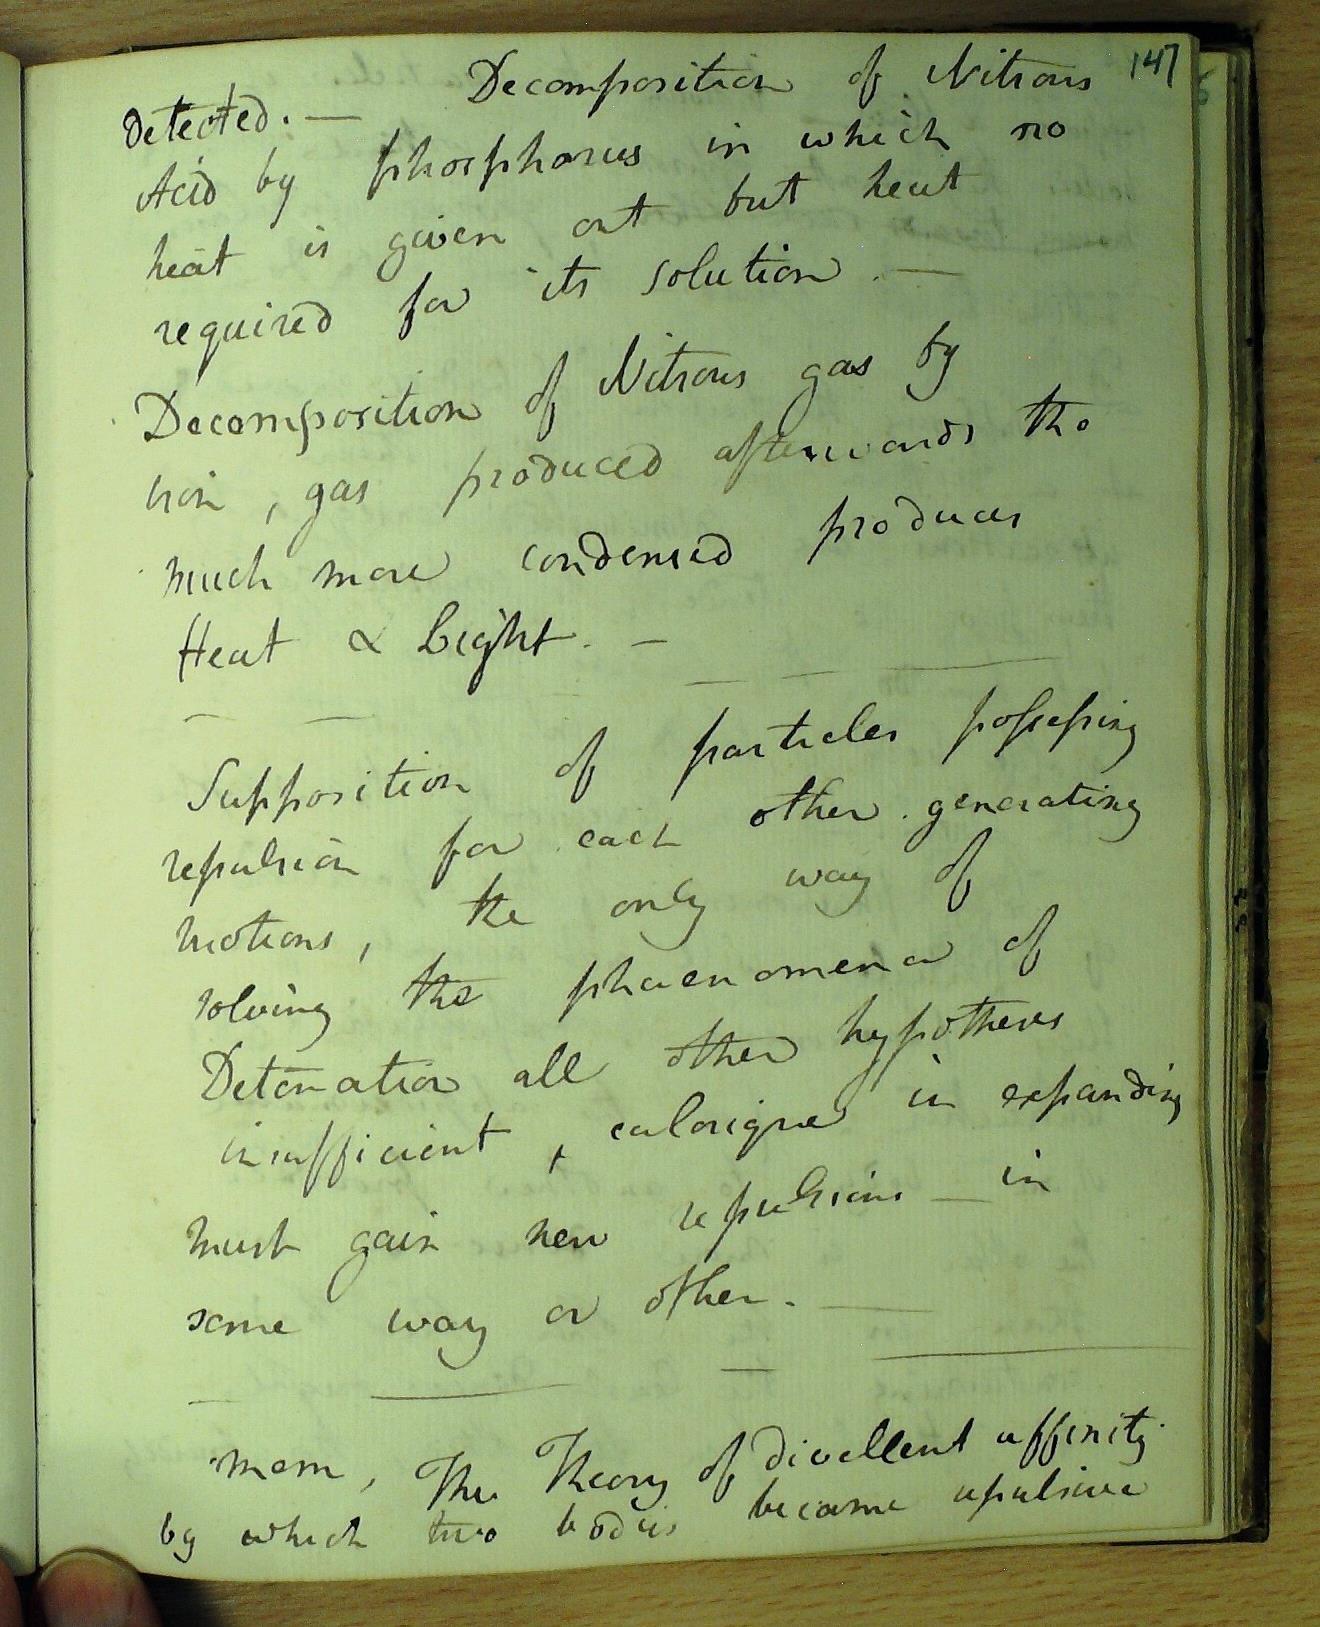 147
detected. — Decomposition of Nitrous
Acid by phosphorus in which no
heat is given out but heat
required for its solution. —
Decomposition of Nitrous gas by
iron, gas produced afterwards tho
much more condensed produces
Heat & Light. —
Supposition of particles possessing
repulsion for each other generating
motions, the only way of
solving the phaenomena of
Detonation all other hypotheses
insufficient, calorique in expanding
must gain new repulsions — in
some way or other. —
mem, The Theory of divellent affinity
by which two bodies become repulsive